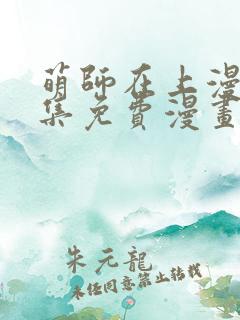 萌師在上漫
集免費漫畫
朱元龍
未任同意禁止转载